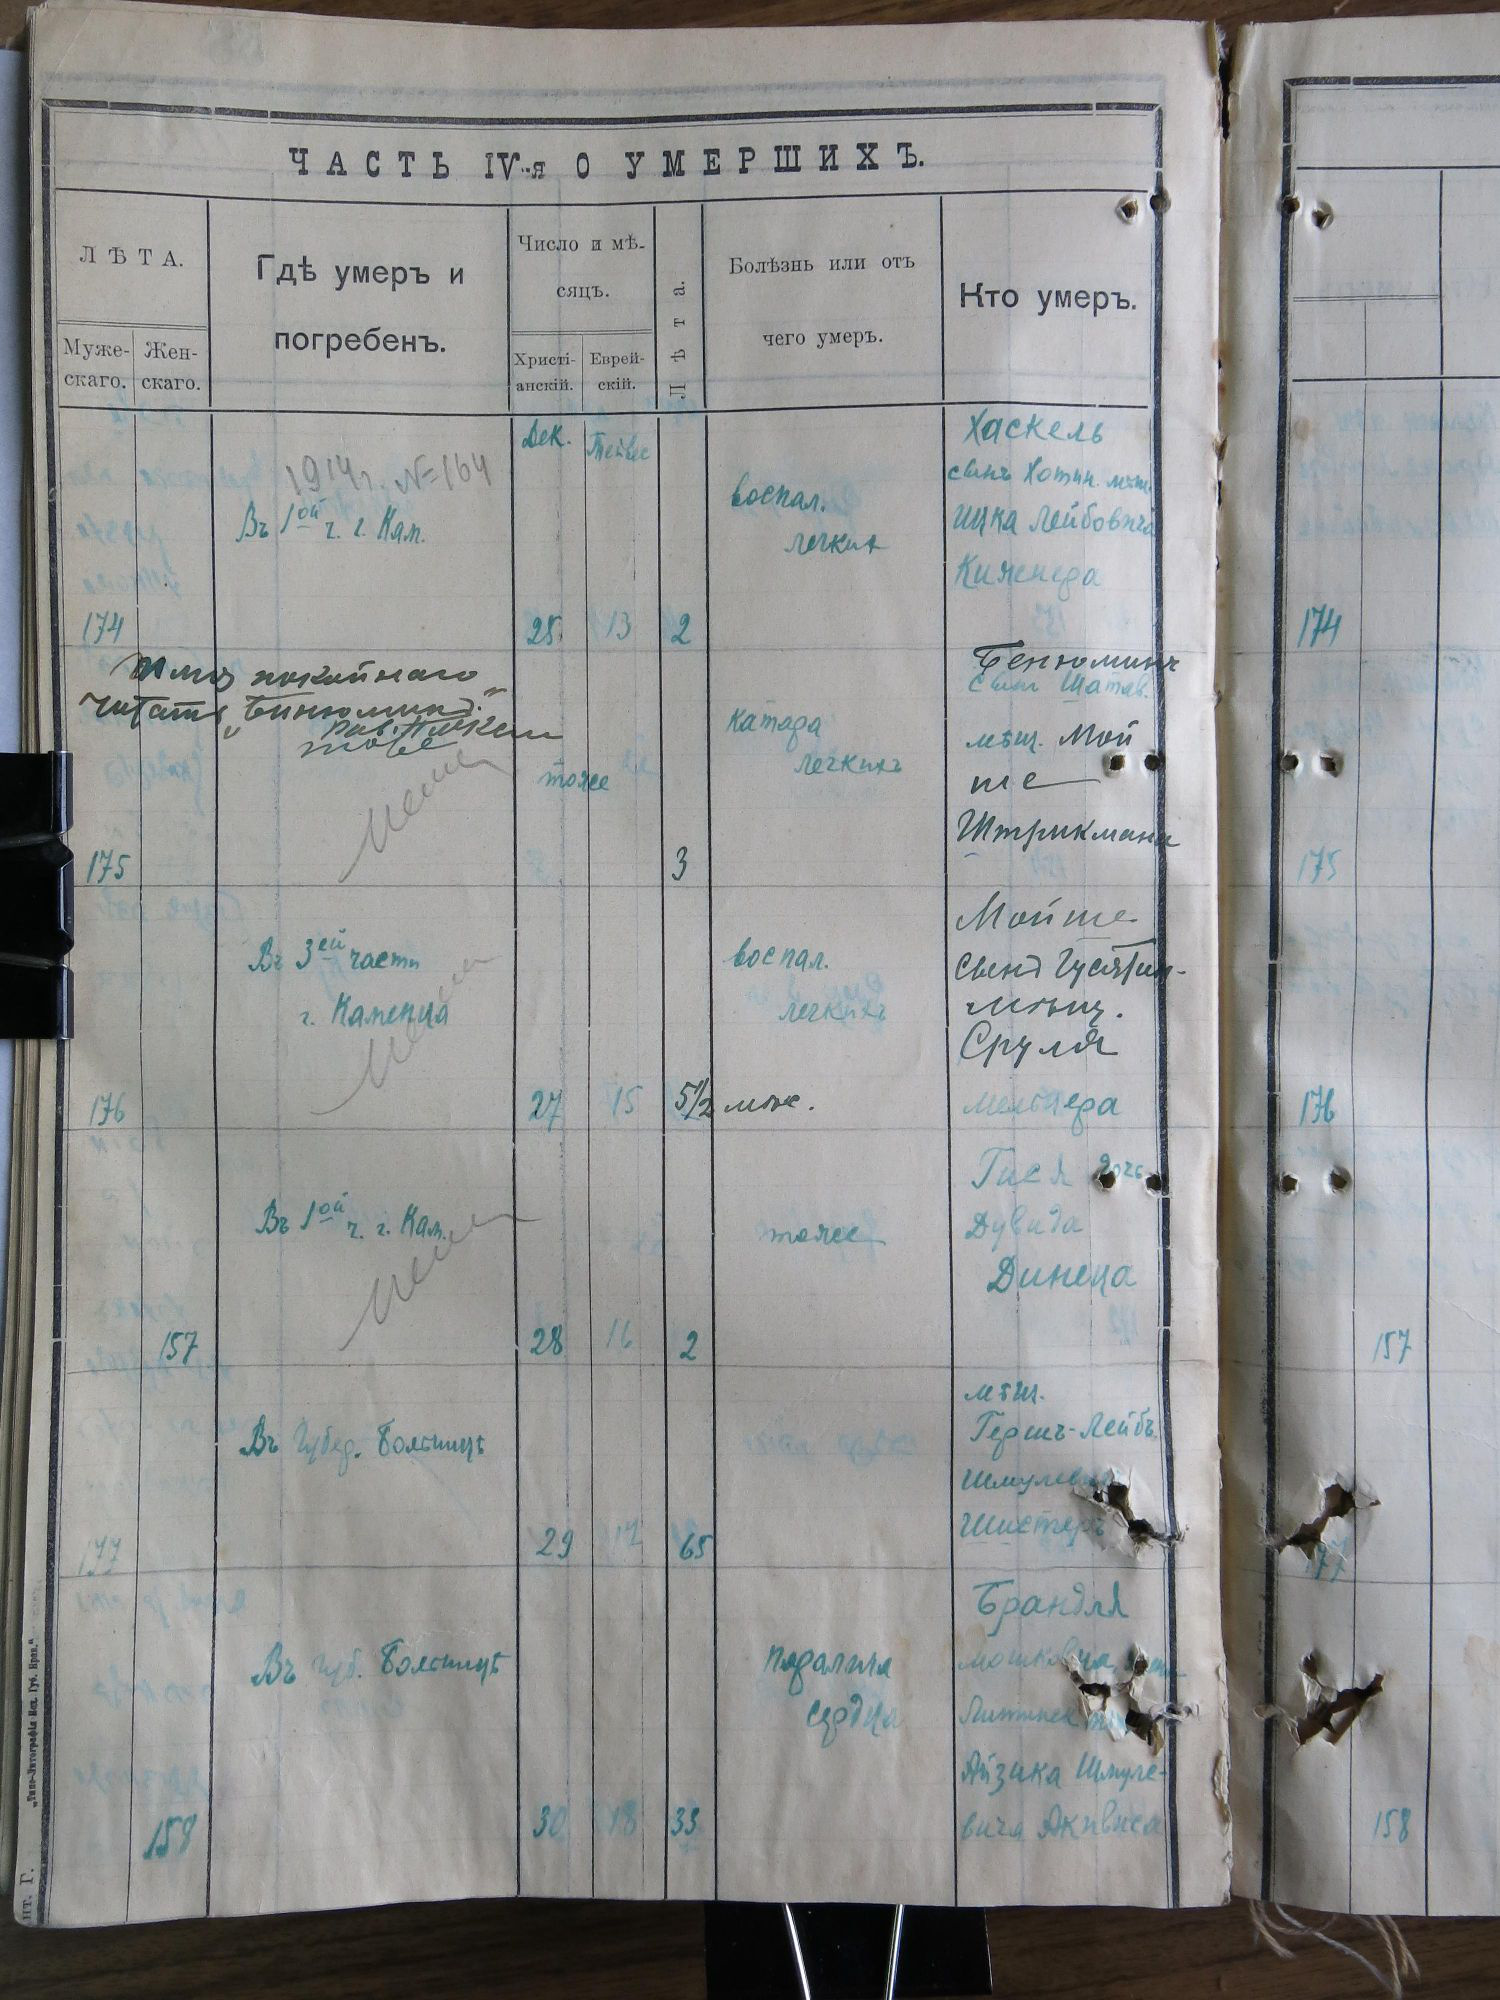 ЧАСТЬ IV-я О УМЕРШИХЪ.
ЛѢТА.
Муже-
скаго.
Жен-
скаго.
Гдѣ умеръ и
погребенъ.
Число и мѣ-
сяцъ.
Христі-
анскій.
Еврей-
скій.
Лѣта.
Болѣзнь или отъ
чего умеръ.
Кто умеръ.
1914 г. №164
Въ 1ой ч. г. Кам.
Дек.
Тейвес
25
13
2
воспал.
легкихъ
Хаскель
сынъ Хотин. мѣщ.
Ицка Лейбовича
174
174
Имя покойнаго
читать „Бинюминъ"
тоже
тоже
3
катара
легкихъ
Бенюминъ
сынъ Шатав.
мѣщ. Мой
ше
Штрикмана
175
175
Въ 3ей части
г. Каменца
27
15
5 1/2 мѣс.
воспал.
легкихъ
Мойше
сынъ Гусятин-
мѣщ.
Сруля
Мельнера
176
176
Въ 1ой ч. г. Кам.
28
16
2
тоже
Гися дочь
Дувида
Динеца
157
157
Въ Губер. Больницѣ
29
17
65
мѣщ.
Гершъ-Лейбъ
177
177
Въ Губ. Больницѣ
30
18
33
паралича
сердца
Брандля
Айзика Шмуле-
вича Акивиса
158
158
„Типо-Литографія Исп. Губ. Прав."